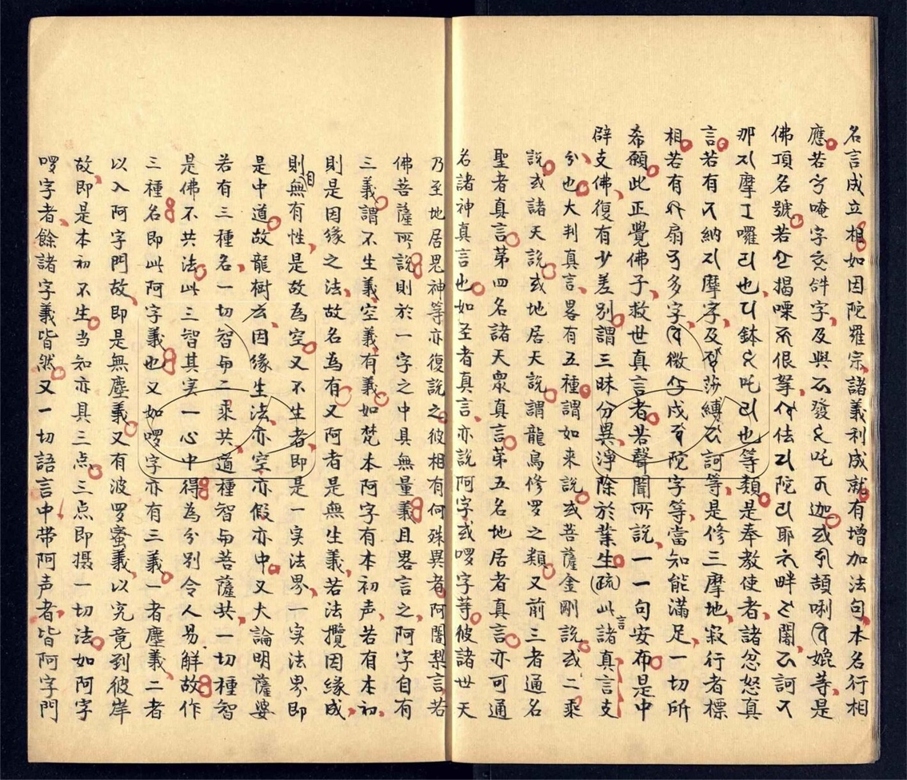 名言成立相如因陀羅宗諸義利成就有增加法句本名行相
應若字唵字字及與發吒迦或頡唎媲等是
佛頂名號若揭㗚佷拏佉陀耶畔闍訶
那摩囉也鉢吒也等類是奉教使者諸忿怒真
言若有納摩字及莎縛訶等是修三摩地寂行者標
相若有扇多字微戍陀字等當知能滿足一切所
希願此正覺佛子救世真言者若聲聞所說一一句安布是中
辟支佛復有少差別謂三昧分異淨除於業生(疏)此諸真言支
分也大判真言畧有五種謂如来說或菩薩金剛說或二乘
說或諸天說或地居天說謂龍鳥修罗之類又前三者通名
聖者真言第四名諸天衆真言第五名地居者真言亦可通
名諸神真言也如聖者真言亦說阿字或啰字等彼諸世天
乃至地居鬼神等亦復說之彼相有何殊異者阿闍梨言若
佛菩薩所說則於一字之中具無量義且畧言之阿字自有
三義謂不生義空義有義如梵本阿字有本初声若有本初
則是因緣之法故名為有又阿者是無生義若法攬因緣成
則無自有性是故為空又不生者即是一实法界一实法界即
是中道故龍樹云因緣生法亦空亦假亦中又大論明薩婆
若有三種名一切智与二乘共道種智与菩薩共一切種智
是佛不共法此三智其实一心中得為分別令人易解故作
三種名即此阿字義也又如啰字亦有三義一者塵義二者
以入阿字門故即是無塵義又有波罗蜜義以究竟到彼岸
故即是本初不生當知亦具三点三点即攝一切法如阿字
啰字者餘諸字義皆然又一切語言中带阿声者皆阿字門